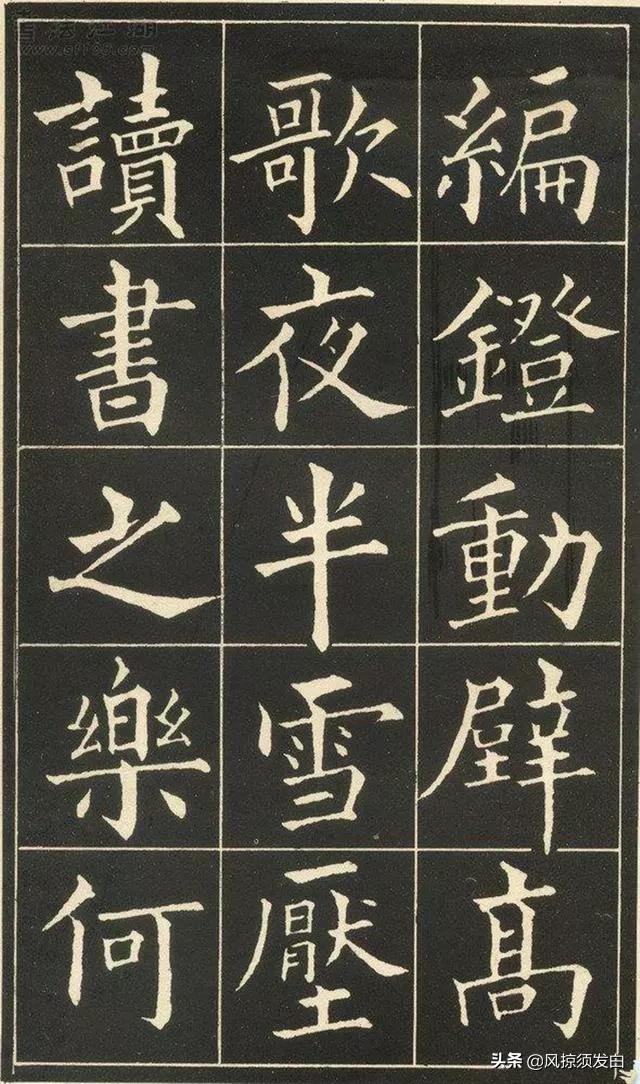 書法江湖
編鐙動壁髙
歌夜半雪壓
讀書之樂何
头条 @风掠须发白